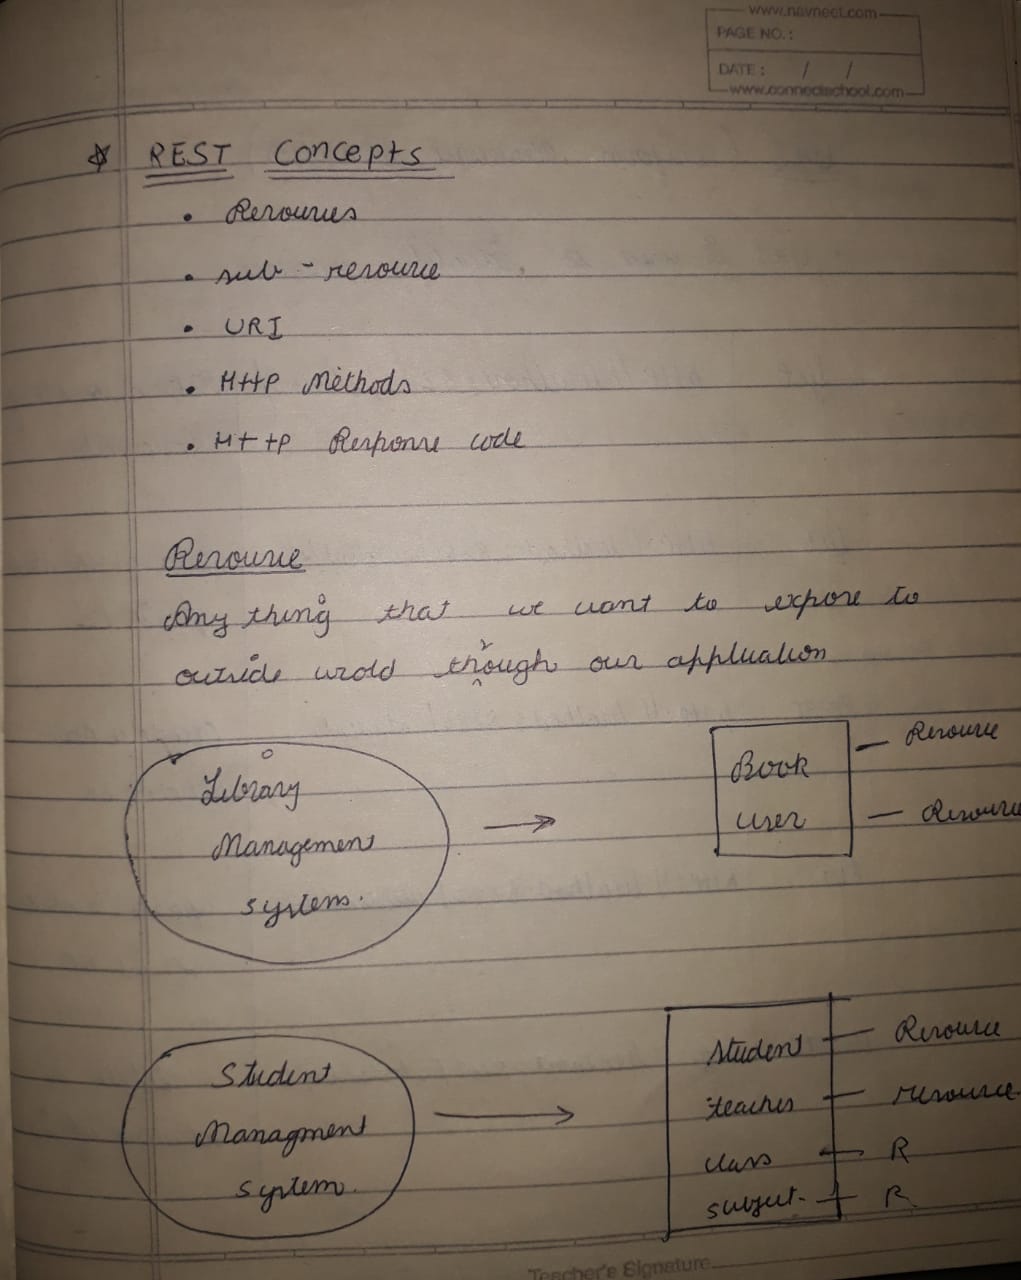 www.navneet.com
PAGE NO.:
DATE: / /
www.connectschool.com
REST Concepts
• Resources
• sub-resource
• URI
• HTTP Methods
• HTTP Response code
Resource
Any thing that we want to expose to
outside wrold through our application
Library
Management
system.
Book
User
Resource
Resource
Student
Managment
system.
Student
teacher
class
subject
Resource
resource
R
R
Teacher's Signature